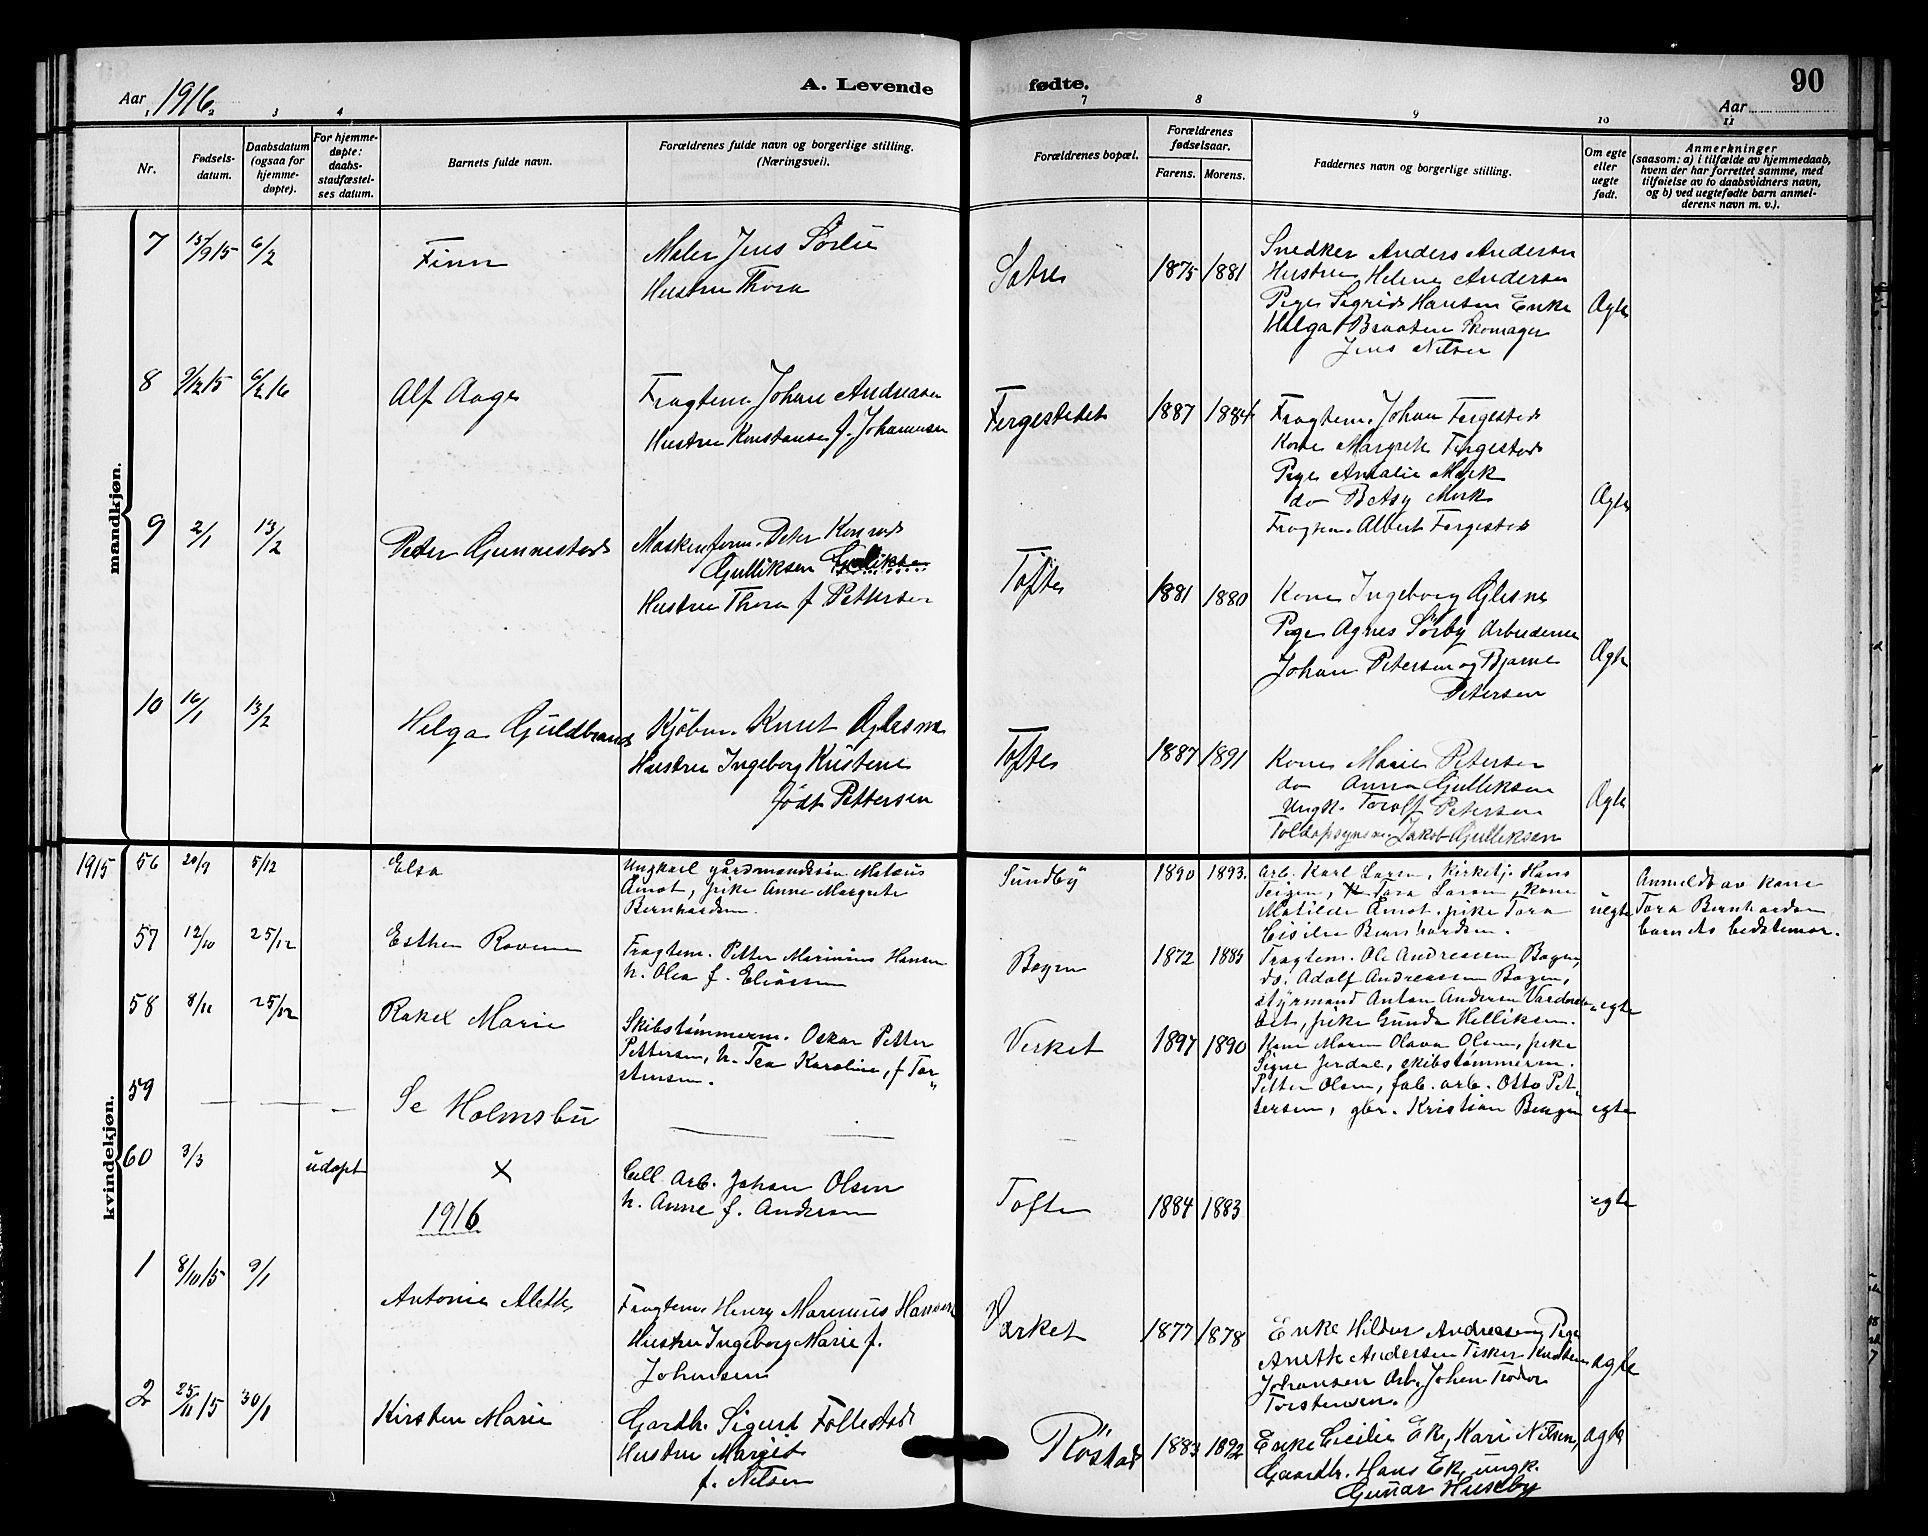 Aar 1916
A. Levende
fødte.
90
Aar
1 2 3 4
7 8 9 10 11
Nr.
Fødsels-
datum.
Daabsdatum
(ogsaa for
hjemme-
døpte).
For hjemme-
døpte:
daabs-
stadfæstel-
ses datum.
Barnets fulde navn.
Forældrenes fulde navn og borgerlige stilling.
(Næringsvei).
Forældrenes bopæl.
Forældrenes
fødselsaar.
Farens. Morens.
Faddernes navn og borgerlige stilling.
Om egte
eller
uegte
født.
Anmerkninger
(saasom: a) i tilfælde av hjemmedaab,
hvem der har forrettet samme, med
tilføielse av to daabsvidners navn,
og b) ved uegtefødte barn anmel-
derens navn m. v.).
mandkjøn.
7 15/9 15 6/2 Finn
Maler Jens Sørlie
Hustru Thora
Sætre 1875 1881
Snedker Anders Andersen
Hustru Helene Andersen
Pige Sigrid Hansen Enke
Helga Braaten Skomager
Jens Nilsen
Ægte
8 9/12 15 6/2 16 Alf Aage
Fragtem. Johan Andreasen
Hustru Konstanse f. Johannesen
Fergestedet 1887 1884
Fragtem. Johan Fergested
Kone Margrete Fergested
Pige Amalie Mørk
do Betsy Mørk
Fragtem. Albert Fergested
Ægte
9 2/1 13/2 Peter Gunnestad
Maskinform. Peter Konrad
Gulliksen
Hustru Thora f Pettersen
Tofte 1881 1880
Kone Ingeborg Gjlesne
Pige Agnes Sørby Arbeiderne
Johan Petersen og Bjarne
Petersen
Ægte
10 16/1 13/2 Helge Guldbrand
Kjøbm. Knut Gjlesne
Hustru Ingeborg Kristine
født Pettersen
Tofte 1887 1891
Kone Marie Petersen
do Anna Gulliksen
Ungk. Torolf Petersen
Toldopsynsm. Jakob Gulliksen
Ægte
kvindekjøn.
1915 56 20/9 5/12 Elsa
Ungkarl gårdmandssøn Mataus
Åmot, pike Anne Margrete
Bernhardsen.
Sundby 1890 1893.
Arb. Karl Larsen, Kirketj. Hans
Teigen, Tora Larsen, kone
Matilde Åmot, pike Tora
Cisilie Bernhardsen.
uegte
Anmeldt av kone
Tora Bernhardsen
barnets bedstemor.
57 12/10 25/12 Esther Rovena
Fragtem. Petter Marinius Hansen
h. Olea f. Eliassen
Bøgen 1872 1885
Fragtem. Ole Andreassen Bøgen,
do. Adolf Andreassen Bøgen,
styrmand Anton Andersen
pike Gunda Helliksen.
egte
58 8/11 25/12 Rakel Marie
Skibstømmerm. Oskar Petter
Pettersen, h. Tea Karoline, f Tor
stensen.
Verket 1897 1890
Kone Maren Olava Olsen, pike
Signe Jerdal, skibstømmerm.
Petter Olsen, fab. arb. Otto Pet
tersen, gbr. Kristian Bergen
egte
59 — — — Se Holmsbu — —
60 3/3 udøpt x
Cell. Arb. Johan Olsen
h. Anne f. Andersen
Tofte 1884 1883 egte
1916
1 8/10 15 9/1 Antonie Alette
Fragtem. Henry Marinius Hansen
Hustru Ingeborg Marie f.
Johansen
Værket 1877 1878
Enke Hilda Andreasen, Pige
Anette Andersen Fisker Knut
Johansen Arb. Johan Teodor
Torstensen.
ægte
2 25/11 15 30/1 Kirsten Marie
Gardbr. Sigurd Follestad
Hustru Margit
f. Nilsen
Røstad 1883 1892
Enke Cecilie Ek, Kari Nilsen,
Gaardbr. Hans Ek, ungk.
Gunnar Huseby
ægte